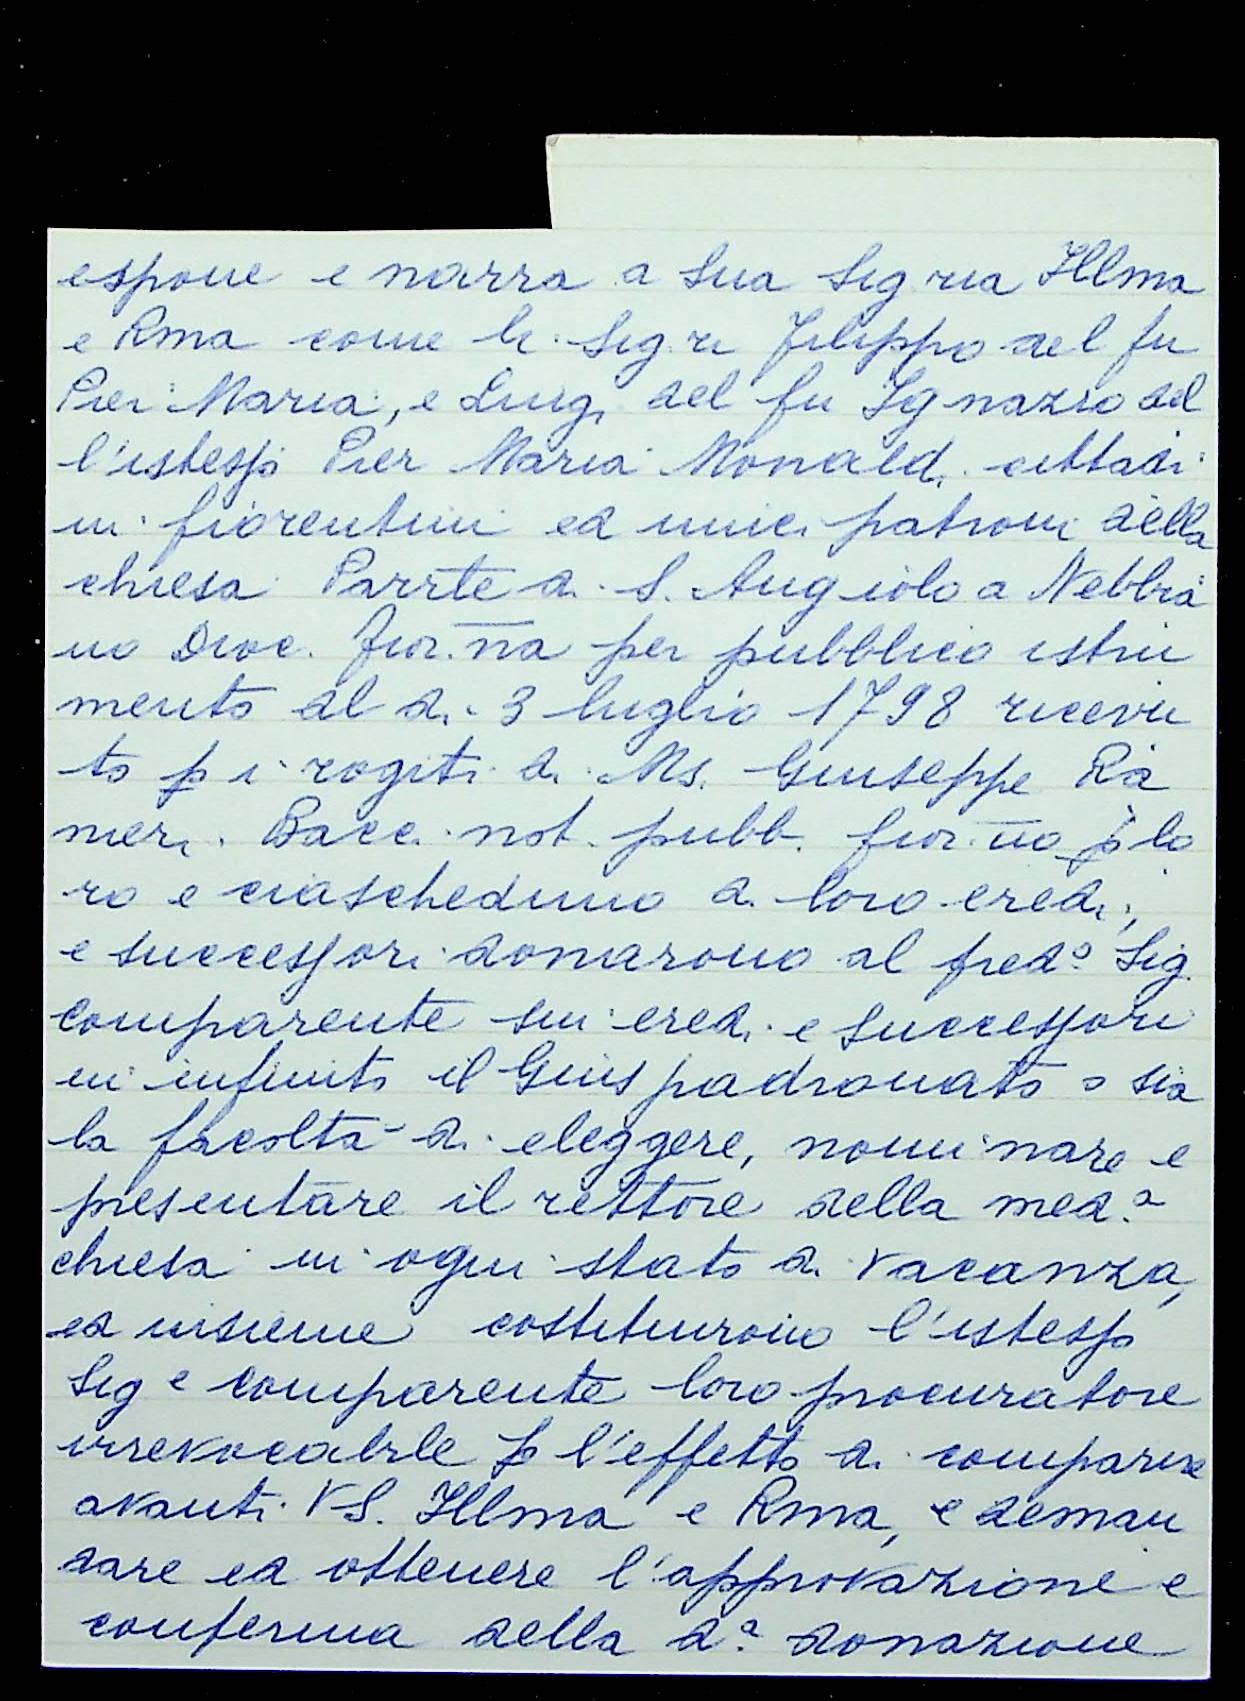 espone e narra a Sua Sig.ria Illma
e Rma come li Sig.ri Filippo del fu
Pier Maria, e Luigi del fu Ignazio del
l'istesso Pier Maria Monaldi cittadi
ni fiorentini ed unici patroni della
chiesa Parr̅te di S. Angiolo a Nebbia
no Dioc. fior.n̅a per pubblico istru
mento del dì 3 luglio 1798 ricevu
to p i rogiti di Ms. Giuseppe Ra
nieri Bacci not. pubb. fior.n̅o p lo
ro e ciascheduno di loro eredi,
e successori donarono al pred.º Sig.
Comparente suoi eredi e successori
in infinito il Giuspadronato o sia
la facoltà di eleggere, nominare e
presentare il rettore della med.ª
chiesa in ogni stato di vacanza,
ed insieme costituirono l'istesso
Sig e Comparente loro procuratore
irrevocabile p l'effetto di comparire
avanti VS. Illma e Rma, e deman
dare ed ottenere l'approvazione e
conferma della d.ª donazione